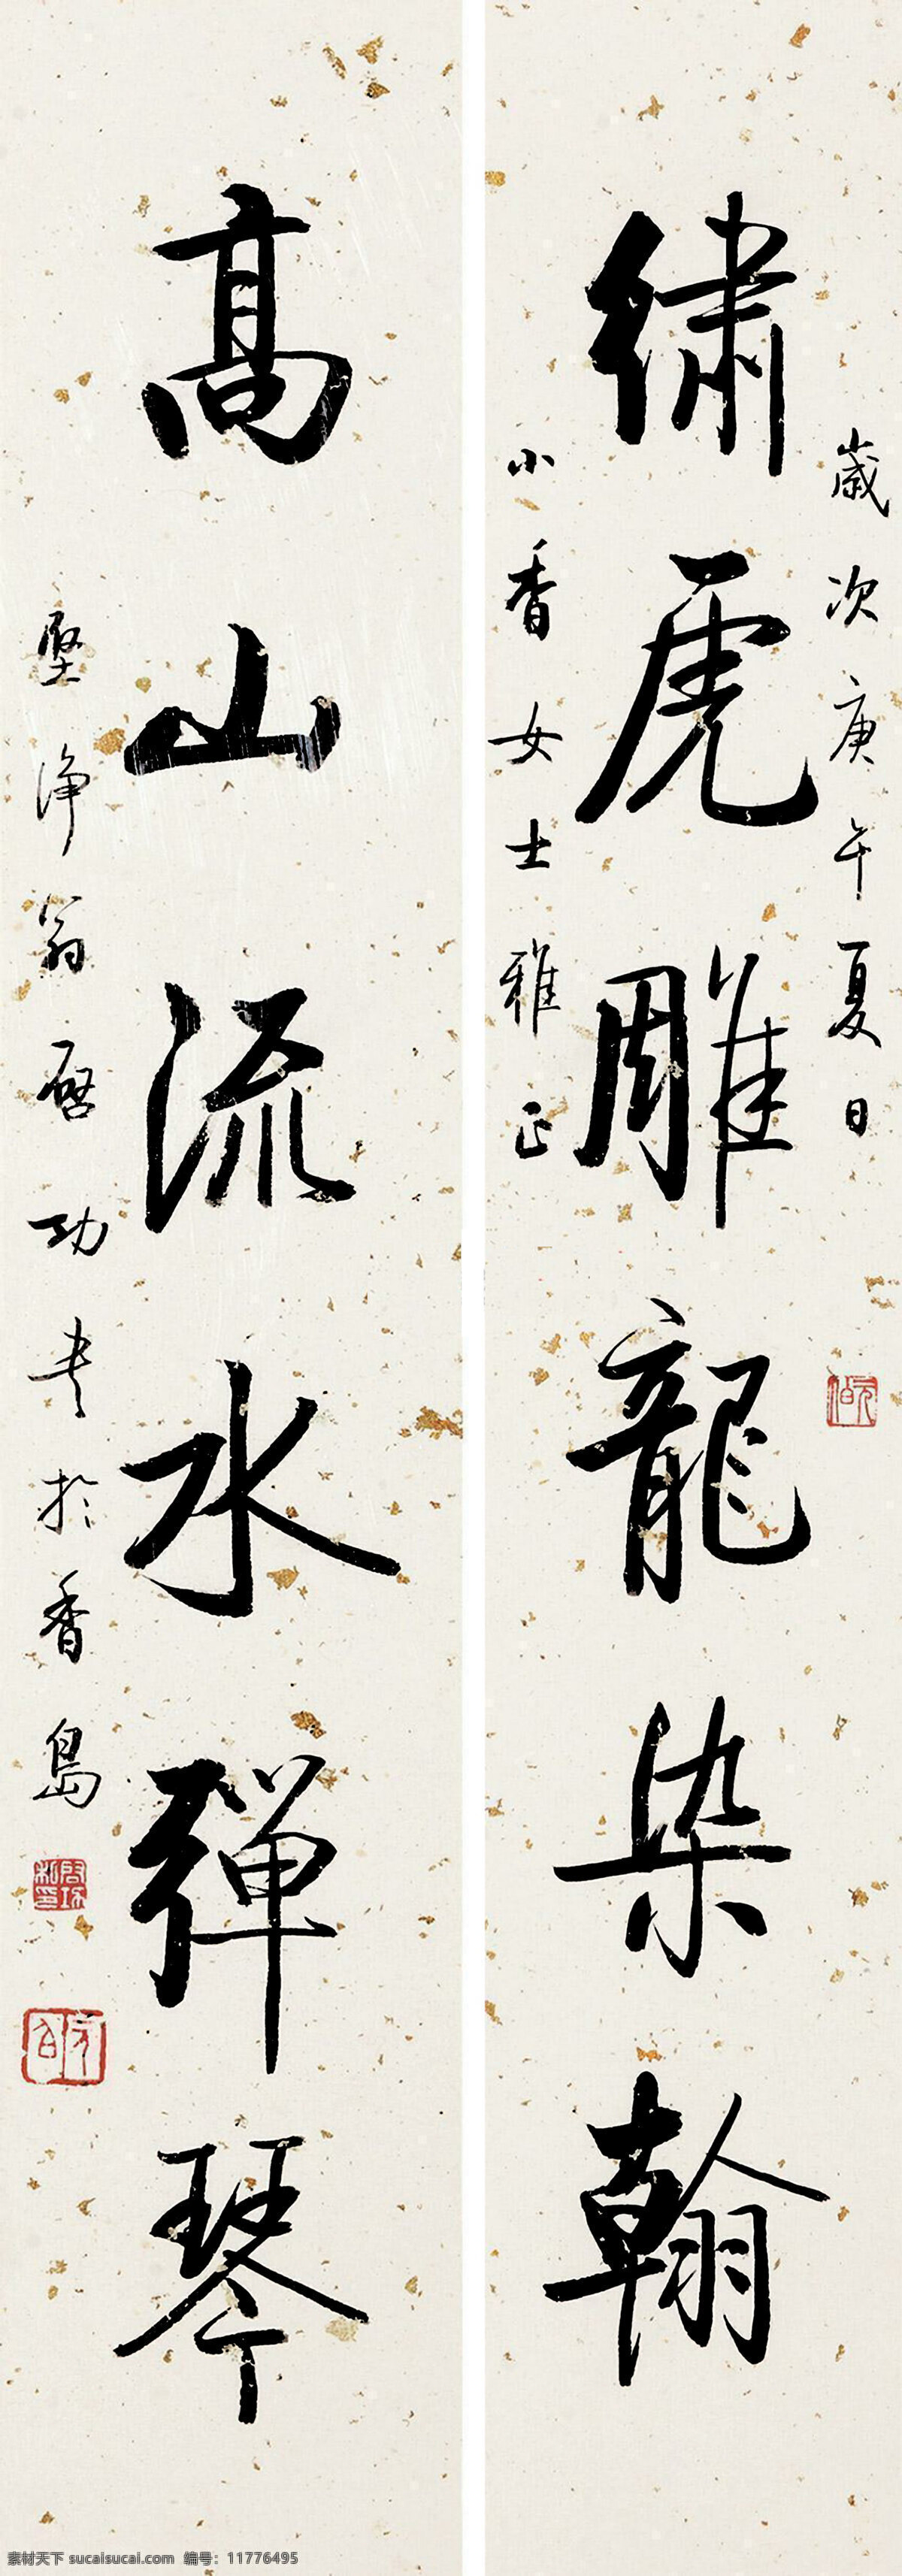 歲次庚午夏日
繡虎雕龍染翰
小香女士雅正
高山流水彈琴
堅淨翁啟功書於香島
素材天下 sucaisucai.com 编号：11776495